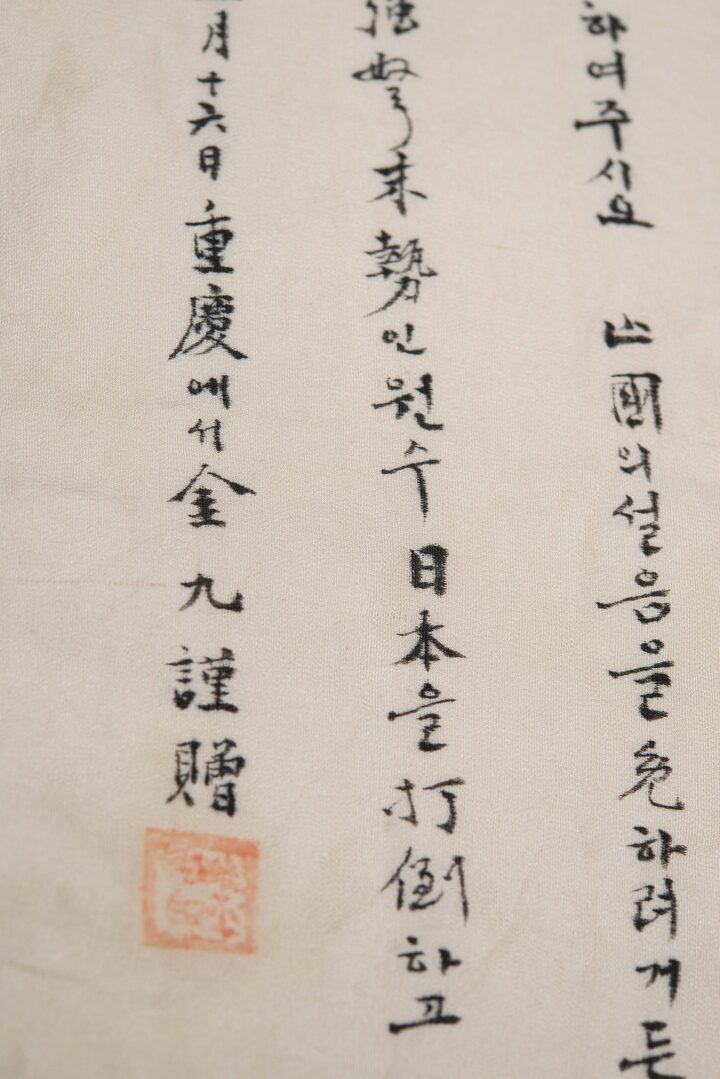 하여주시요 亡國의설움을免하려거든
强弩末勢인원수日本을打倒하고
月十六日重慶에서金九謹贈